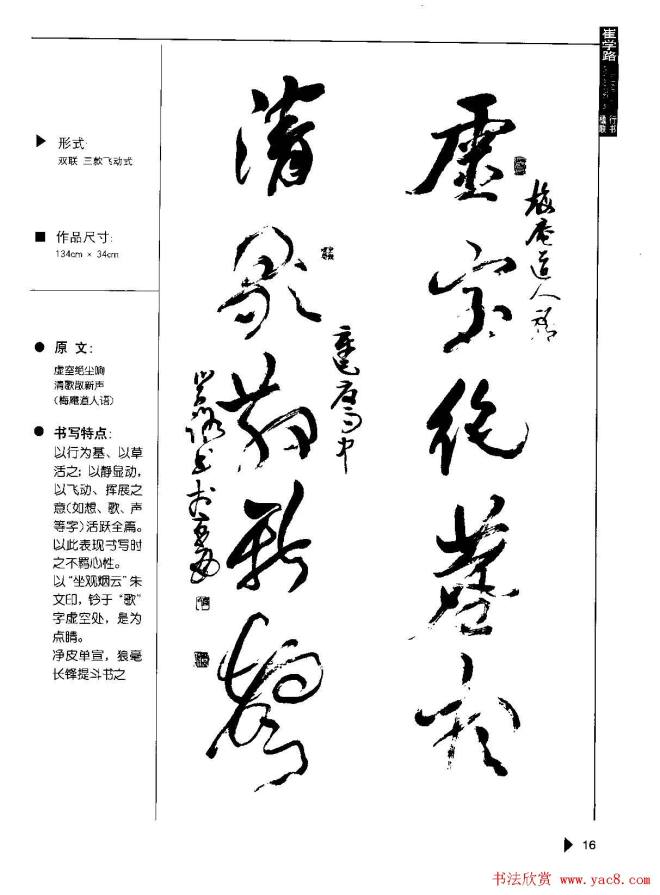 崔学路
行书
楹联
形式:
双联 三款飞动式
作品尺寸:
134cm × 34cm
原 文:
虚空绝尘响
清歌散新声
(梅庵道人语)
书写特点:
以行为基、以草
活之；以静显动，
以飞动、挥展之
意(如想、歌、声
等字)活跃全篇。
以此表现书写时
之不羁心性。
以“坐观烟云”朱
文印，钤于“歌”
字虚空处，是为
点睛。
净皮单宣，狼毫
长锋提斗书之
梅庵道人语
虚空绝尘响
清歌散新声
16
书法欣赏 www.yac8.com